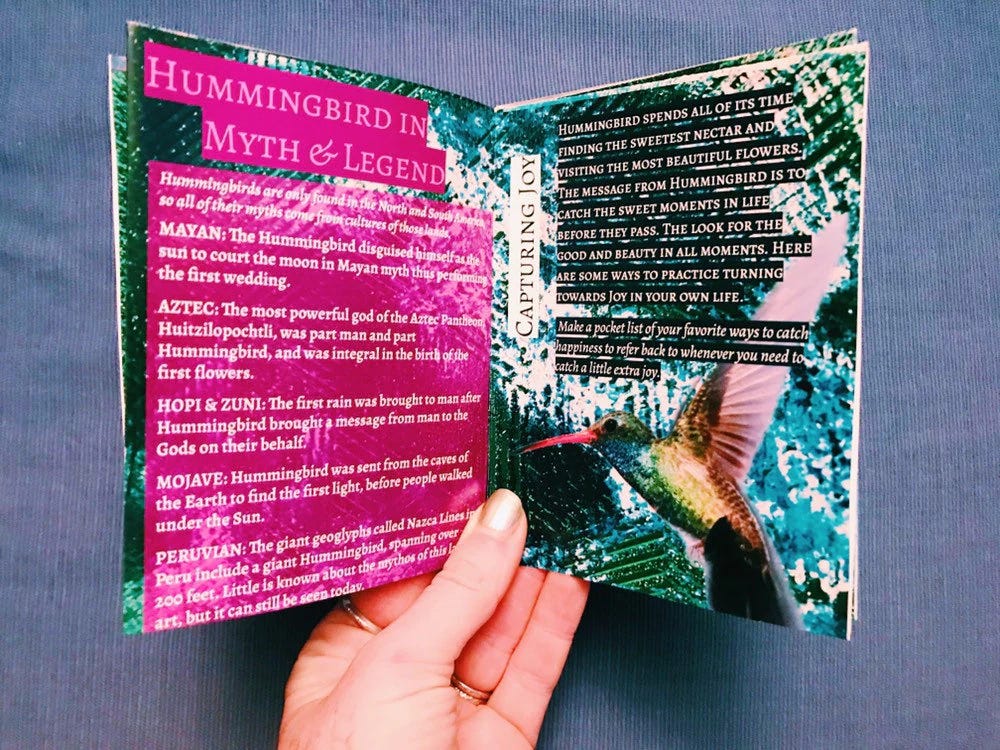 Hummingbird in
Myth & Legend
Hummingbirds are only found in the North and South America,
so all of their myths come from cultures of those lands.
MAYAN: The Hummingbird disguised himself as the
sun to court the moon in Mayan myth thus performing
the first wedding.
AZTEC: The most powerful god of the Aztec Pantheon,
Huitzilopochtli, was part man and part
Hummingbird, and was integral in the birth of the
first flowers.
HOPI & ZUNI: The first rain was brought to man after
Hummingbird brought a message from man to the
Gods on their behalf.
MOJAVE: Hummingbird was sent from the caves of
the Earth to find the first light, before people walked
under the Sun.
PERUVIAN: The giant geoglyphs called Nazca Lines in
Peru include a giant Hummingbird, spanning over
200 feet. Little is known about the mythos of this
art, but it can still be seen today.
Capturing Joy
Hummingbird spends all of its time
finding the sweetest nectar and
visiting the most beautiful flowers.
The message from Hummingbird is to
catch the sweet moments in life
before they pass. The look for the
good and beauty in all moments. Here
are some ways to practice turning
towards Joy in your own life.
Make a pocket list of your favorite ways to catch
happiness to refer back to whenever you need to
catch a little extra joy.